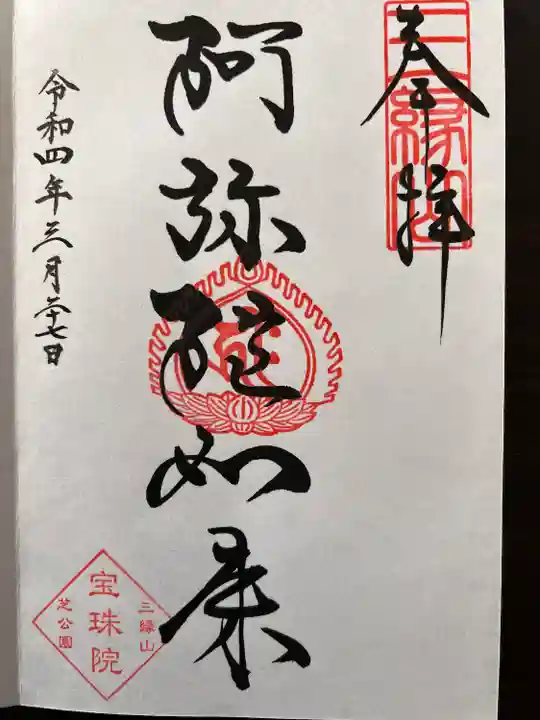 奉拝
三縁山
阿弥陀如来
令和四年三月二十七日
三縁山
宝珠院
芝公園